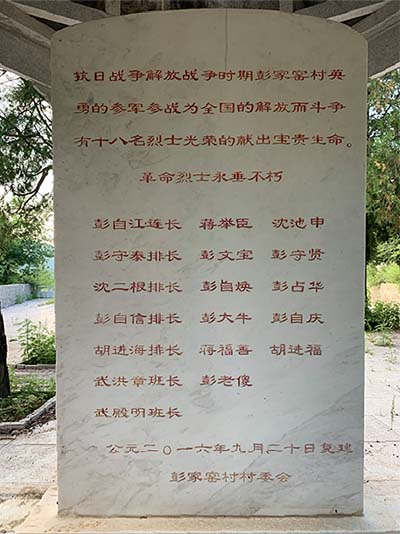 抗日战争解放战争时期彭家窑村英
勇的参军参战为全国的解放而斗争
有十八名烈士光荣的献出宝贵生命。
革命烈士永垂不朽
彭自江连长 蒋举臣 沈池申
彭守泰排长 彭文宝 彭守贤
沈二根排长 彭自焕 彭占华
彭自信排长 彭大牛 彭自庆
胡进海排长 蒋福善 胡进福
武洪章班长 彭老傻
武殿明班长
公元二〇一六年九月二十日复建
彭家窑村村委会